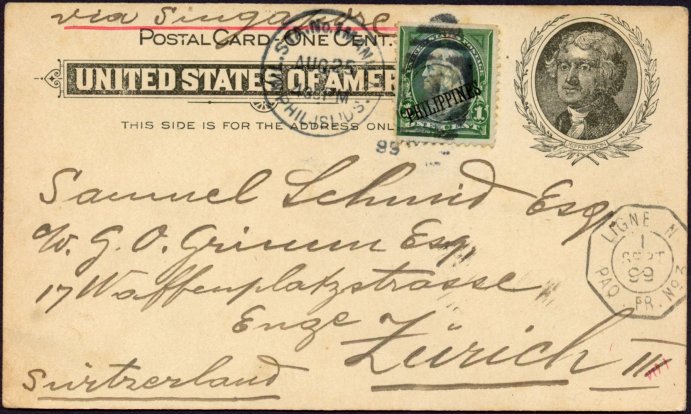 via Singapore
POSTAL CARD - ONE CENT.
UNITED STATES OF AMER
THIS SIDE IS FOR THE ADDRESS ONL
AUG 25
PM
PHIL. ISL'DS.
99
PHILIPPINES
1
JEFFERSON
Samuel Schmid Esq
W. G. O. Grimm Esq
17 Waffenplatzstrasse
Enge Zürich III
Switzerland
LIGNE N
1
SEPT
99
PAQ. FR. No 3